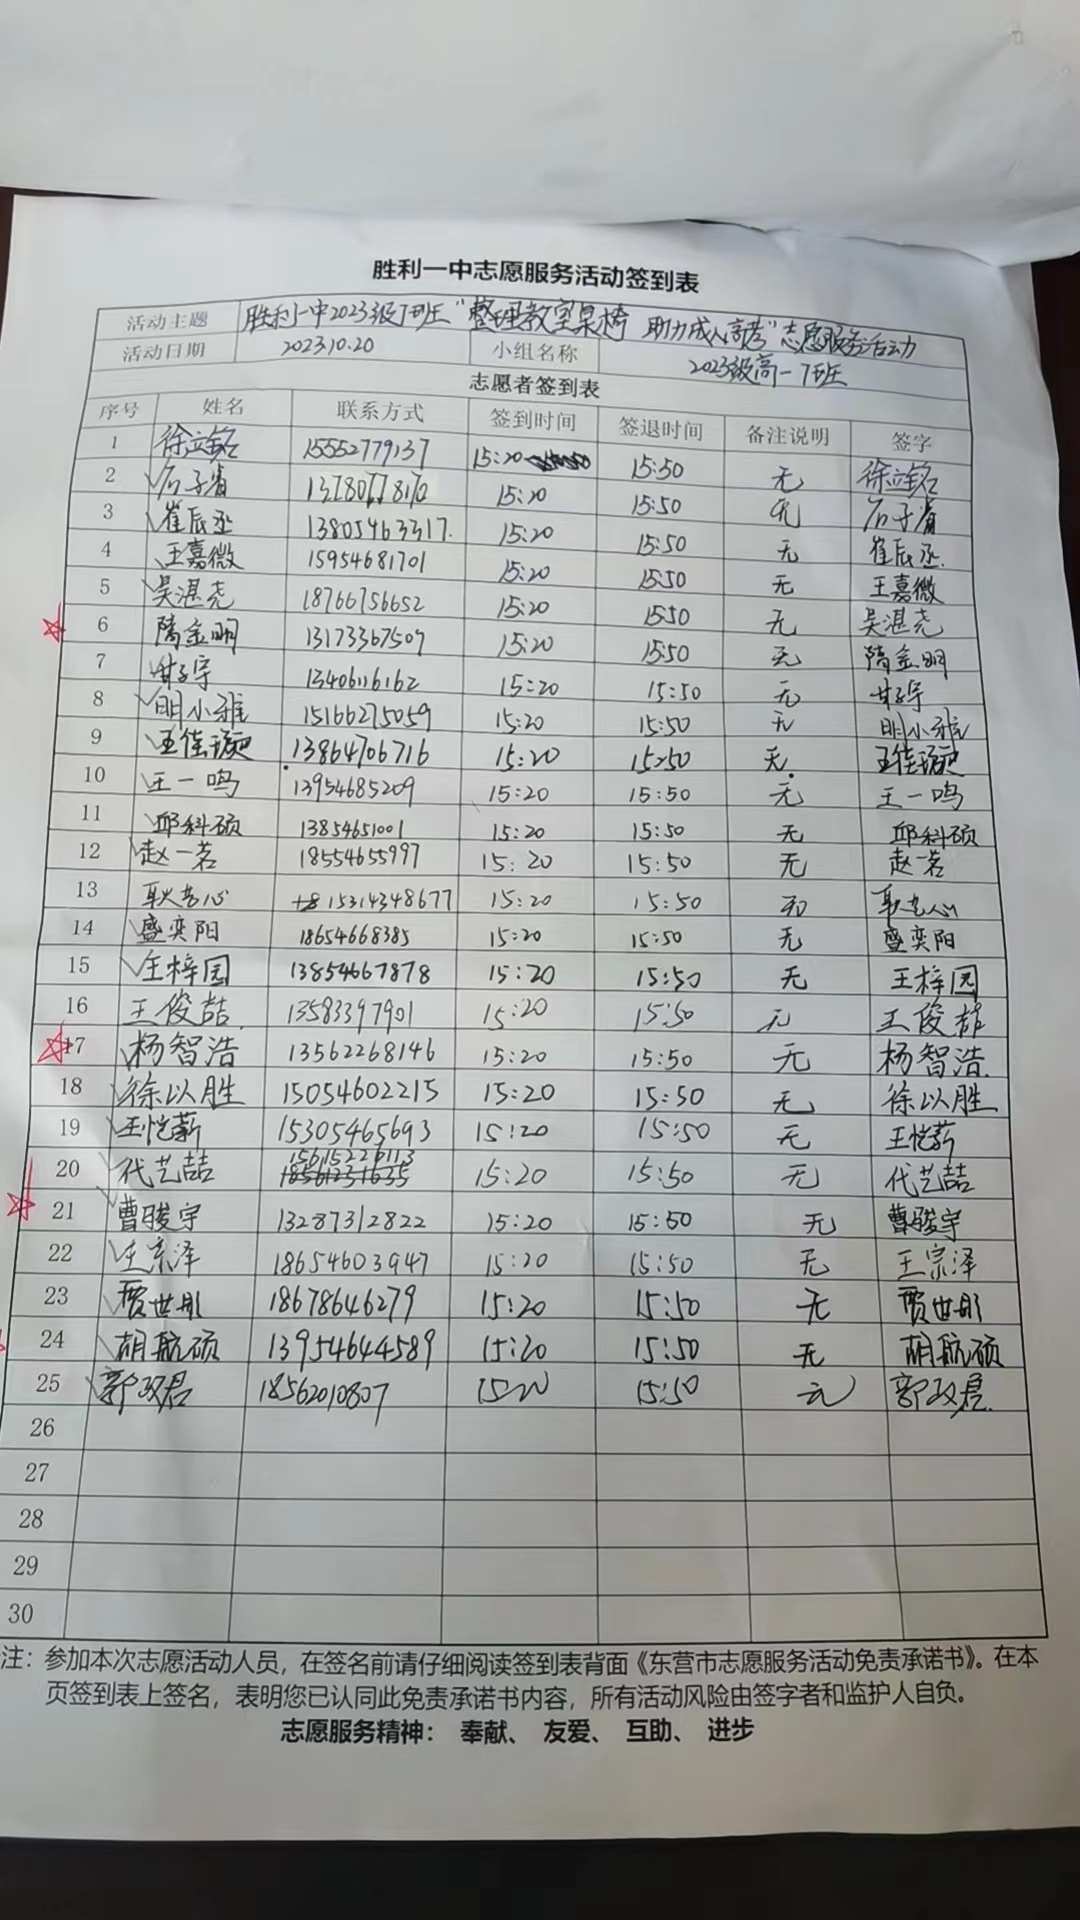 胜利一中志愿服务活动签到表
活动主题 胜利一中2023级7班"整理教室桌椅 助力成人高考"志愿服务活动
活动日期 2023.10.20 小组名称 2023级高一7班
志愿者签到表
序号 姓名 联系方式 签到时间 签退时间 备注说明 签字
1 徐立铭 15552779137 15:20 15:50 无 徐立铭
2 石子 15:20 15:50 无 石子
3 崔辰丞 13805463317. 15:20 15:50 无 崔辰丞.
4 王嘉微 15954681701 15:20 15:50 无 王嘉微
5 吴湛尧 18766756652 15:20 15:50 无 吴湛尧
6 隋金明 13173367509 15:20 15:50 无 隋金明
7 甘子宇 13406116162 15:20 15:50 无 甘子宇
8 明小雅 15166275059 15:20 15:50 无 明小雅
9 王佳 13864706716 15:20 15:50 无. 王佳
10 王一鸣 13954685209 15:20 15:50 无 王一鸣
11 邱科硕 13854651001 15:20 15:50 无 邱科硕
12 赵一茗 18554655997 15:20 15:50 无 赵一茗
13 耿艺心 15314348677 15:20 15:50 无 耿艺心
14 盛奕阳 18654668385 15:20 15:50 无 盛奕阳
15 王梓园 13854667878 15:20 15:50 无 王梓园
16 王俊喆. 13583397901 15:20 15:50 无 王俊喆
17 杨智浩 13562268146 15:20 15:50 无 杨智浩.
18 徐以胜 15054602215 15:20 15:50 无 徐以胜
19 王恺薪 15305465693 15:20 15:50 无 王恺薪
20 代艺喆 15615226113 18561231635 15:20 15:50 无 代艺喆
21 曹骏宇 13287312822 15:20 15:50 无 曹骏宇
22 王宗泽 18654603947 15:20 15:50 无 王宗泽
23 贾世彤 18678646279 15:20 15:50 无 贾世彤
24 胡航硕 13954644589 15:20 15:50 无 胡航硕
25 郭政君 18562010807 15:20 15:50 无 郭政君.
26
27
28
29
30
注：参加本次志愿活动人员，在签名前请仔细阅读签到表背面《东营市志愿服务活动免责承诺书》。在本
页签到表上签名，表明您已认同此免责承诺书内容，所有活动风险由签字者和监护人自负。
志愿服务精神： 奉献、 友爱、 互助、 进步